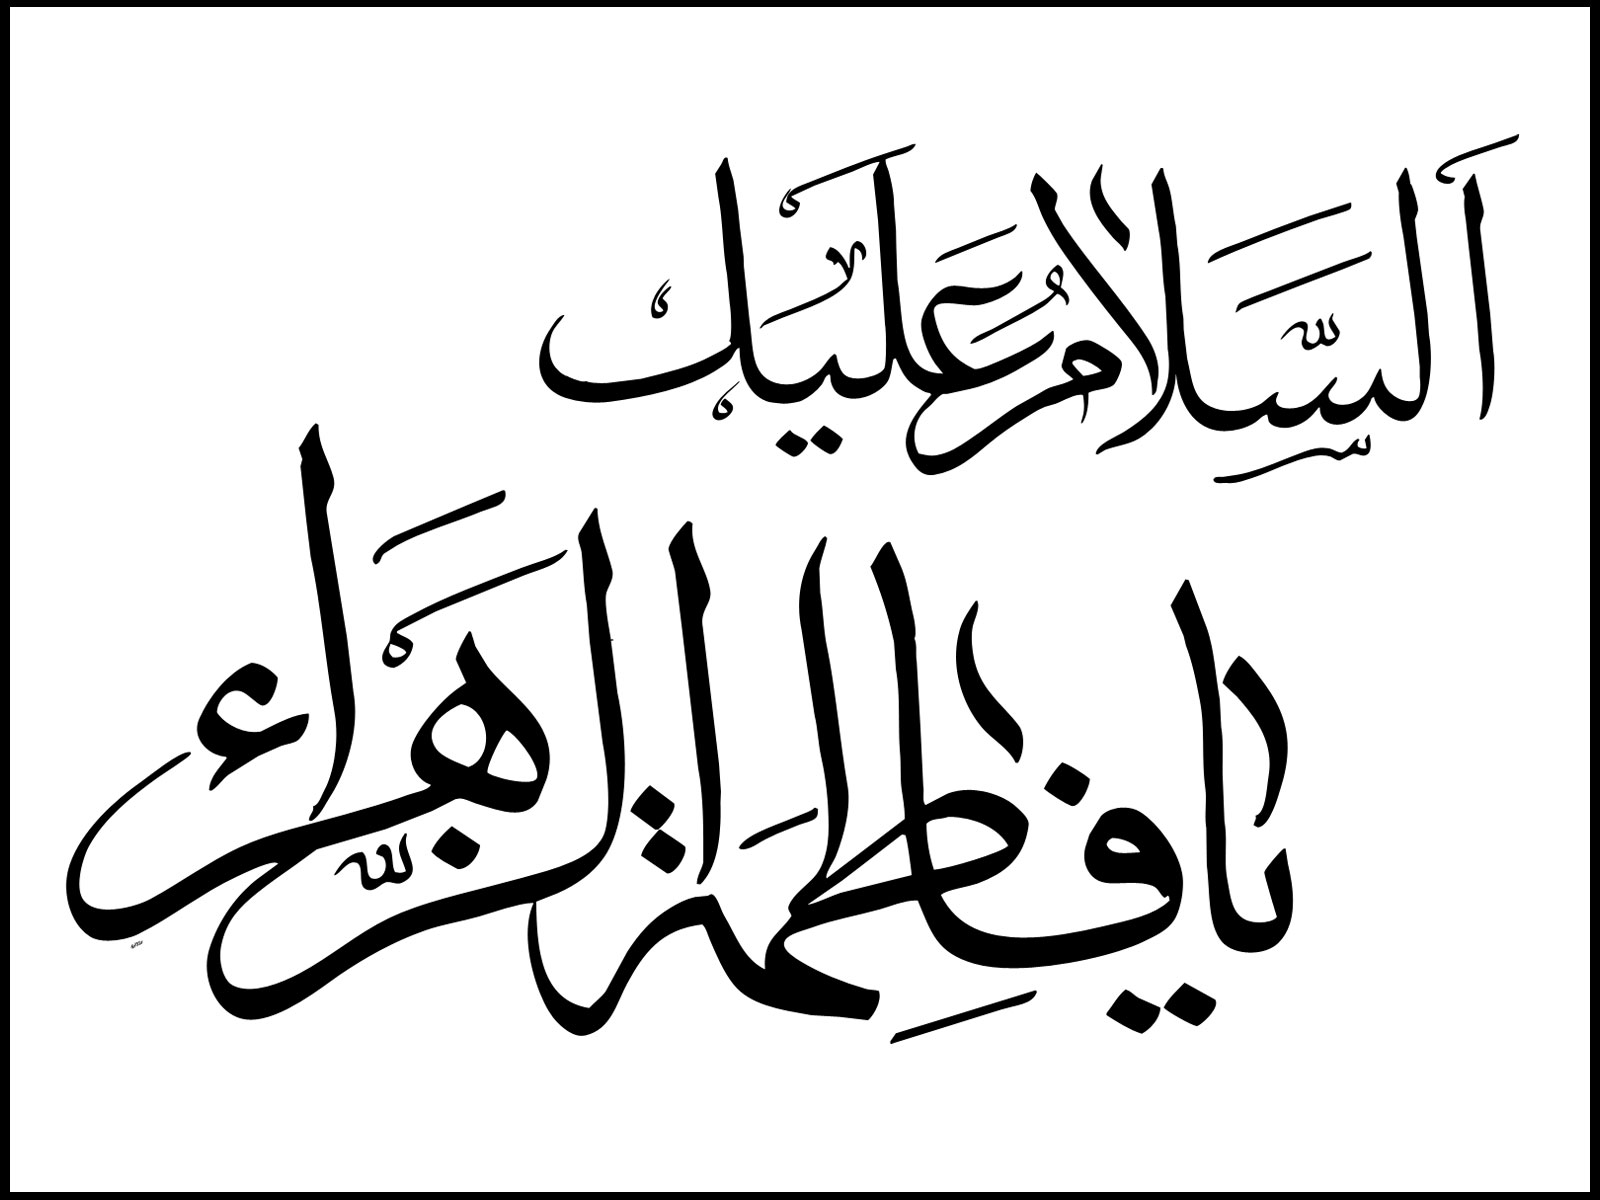 اَلسَّلَامُ عَلَیْکَ
یا فاطِمَةَ الزَّهْراء